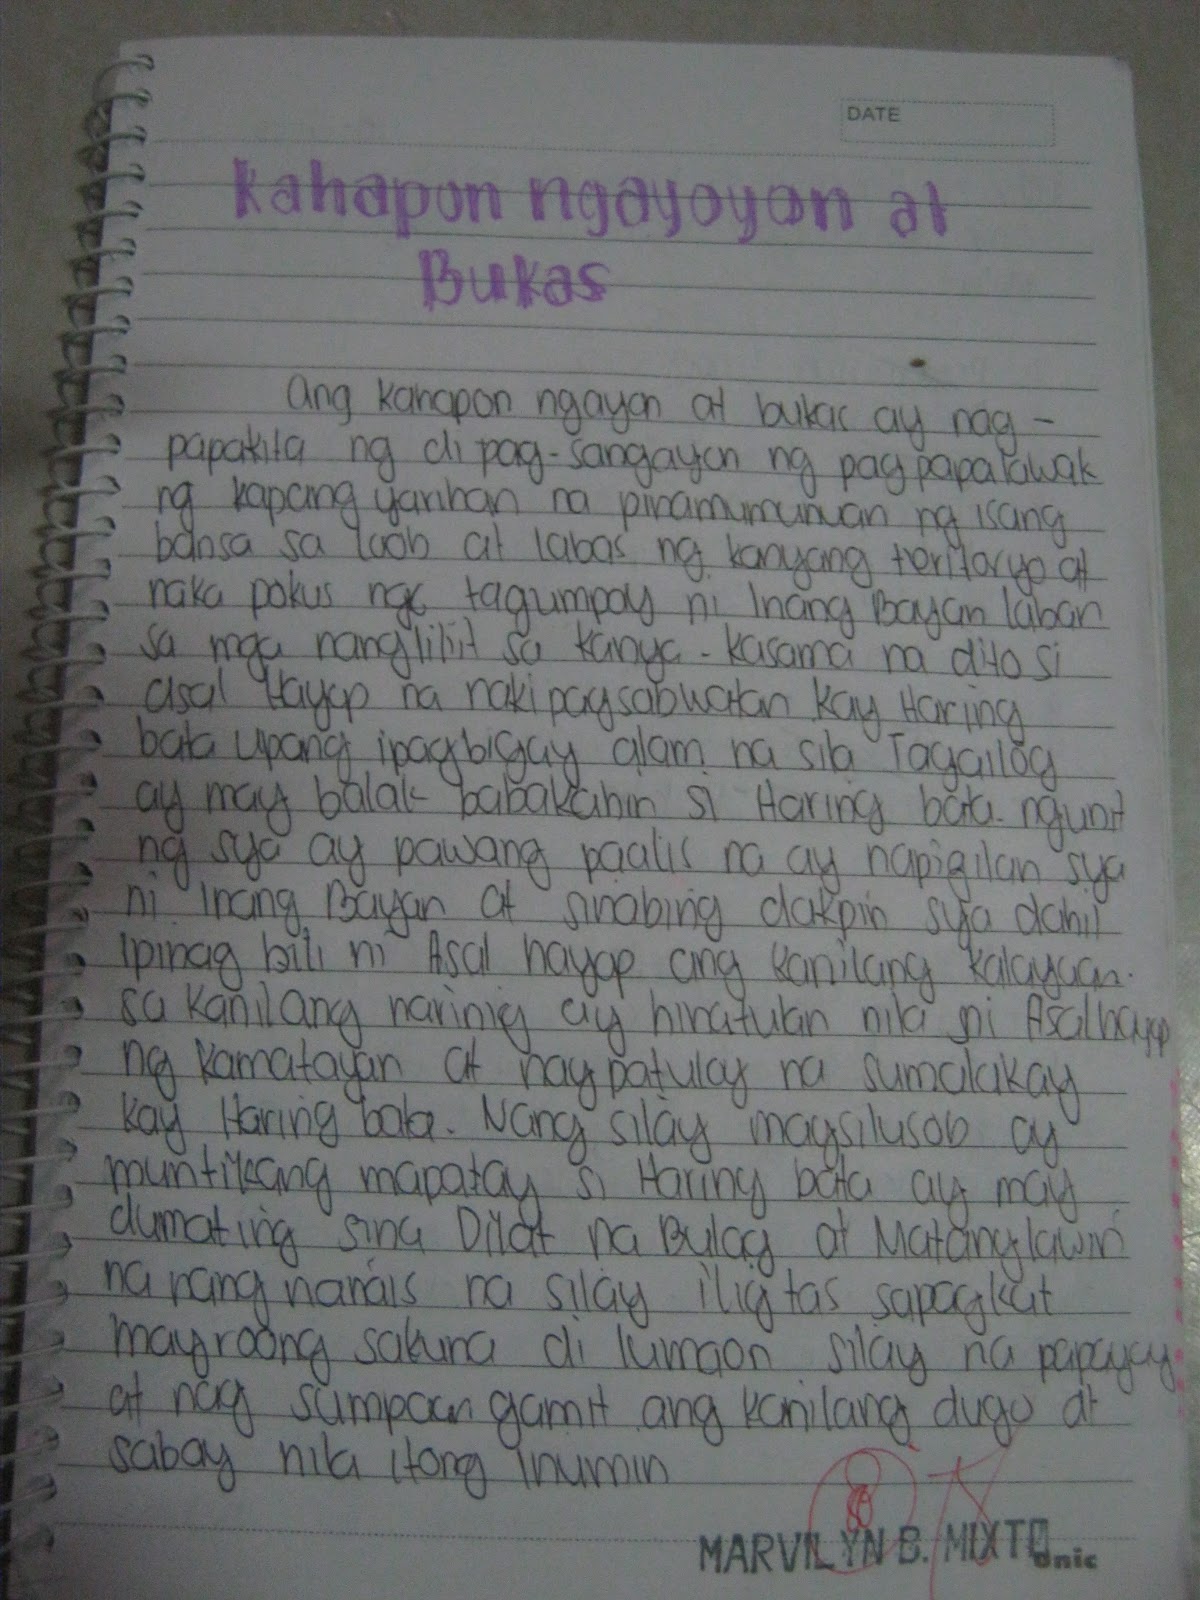 DATE
Kahapon ngayoyan at
Bukas
Ang kahapon ngayon at bukas ay nag-
papakita ng di pag-sangayon ng pagpapalawak
ng kapangyarihan na pinamumunuan ng isang
bansa sa loob at labas ng kanyang teritoryo at
naka pokus ng tagumpay ni Inang Bayan laban
sa mga nanglibit sa kanya. kasama na dito si
asal Hayop na nakipagsabwatan kay Haring
bata upang ipagbigay alam na sila Tagailog
ay may balak babakahin si Haring bata. ngunit
ng sya ay pawang paalis na ay napigilan sya
ni Inang Bayan at sinabing dakpin sya dahil
Ipinag bili ni Asal hayop ang kanilang kalayaan.
sa kanilang narinig ay hinatulan nila ni Asalhayop
ng kamatayan at nagpatuloy na sumalakay
kay Haring bata. Nang silay magsilusob ay
muntikang mapatay si Haring bata ay may
dumating sina Dilat na Bulag at Matanglawin
na nang nanais na silay iligtas sapagkat
mayroong sakuna di lumaon silay na papayay
at nag sumpaan gamit ang kanilang dugo at
sabay nila itong inumin
MARVILYN B. MIXTO
onic